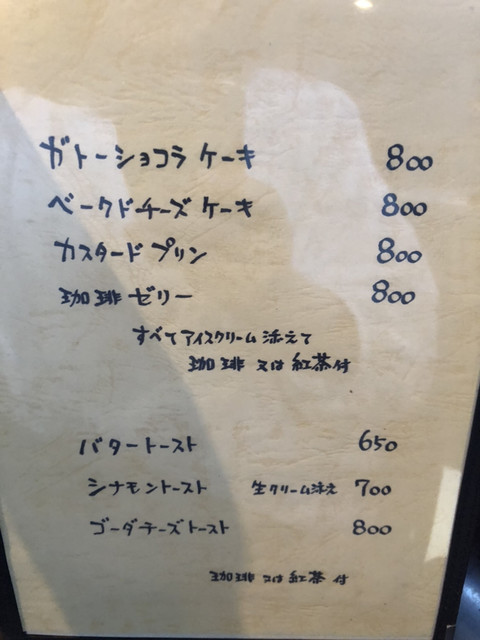 ガトーショコラ ケーキ 800
ベークドチーズ ケーキ 800
カスタード プリン 800
珈琲 ゼリー 800
すべてアイスクリーム 添えて
珈琲 又は 紅茶 付
バタートースト 650
シナモントースト 生クリーム添え 700
ゴーダチーズトースト 800
珈琲 又は 紅茶 付